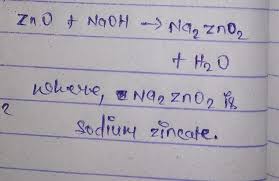 ZnO + NaOH → Na₂ZnO₂
+ H₂O
where, Na₂ZnO₂ is
Sodium zincate.